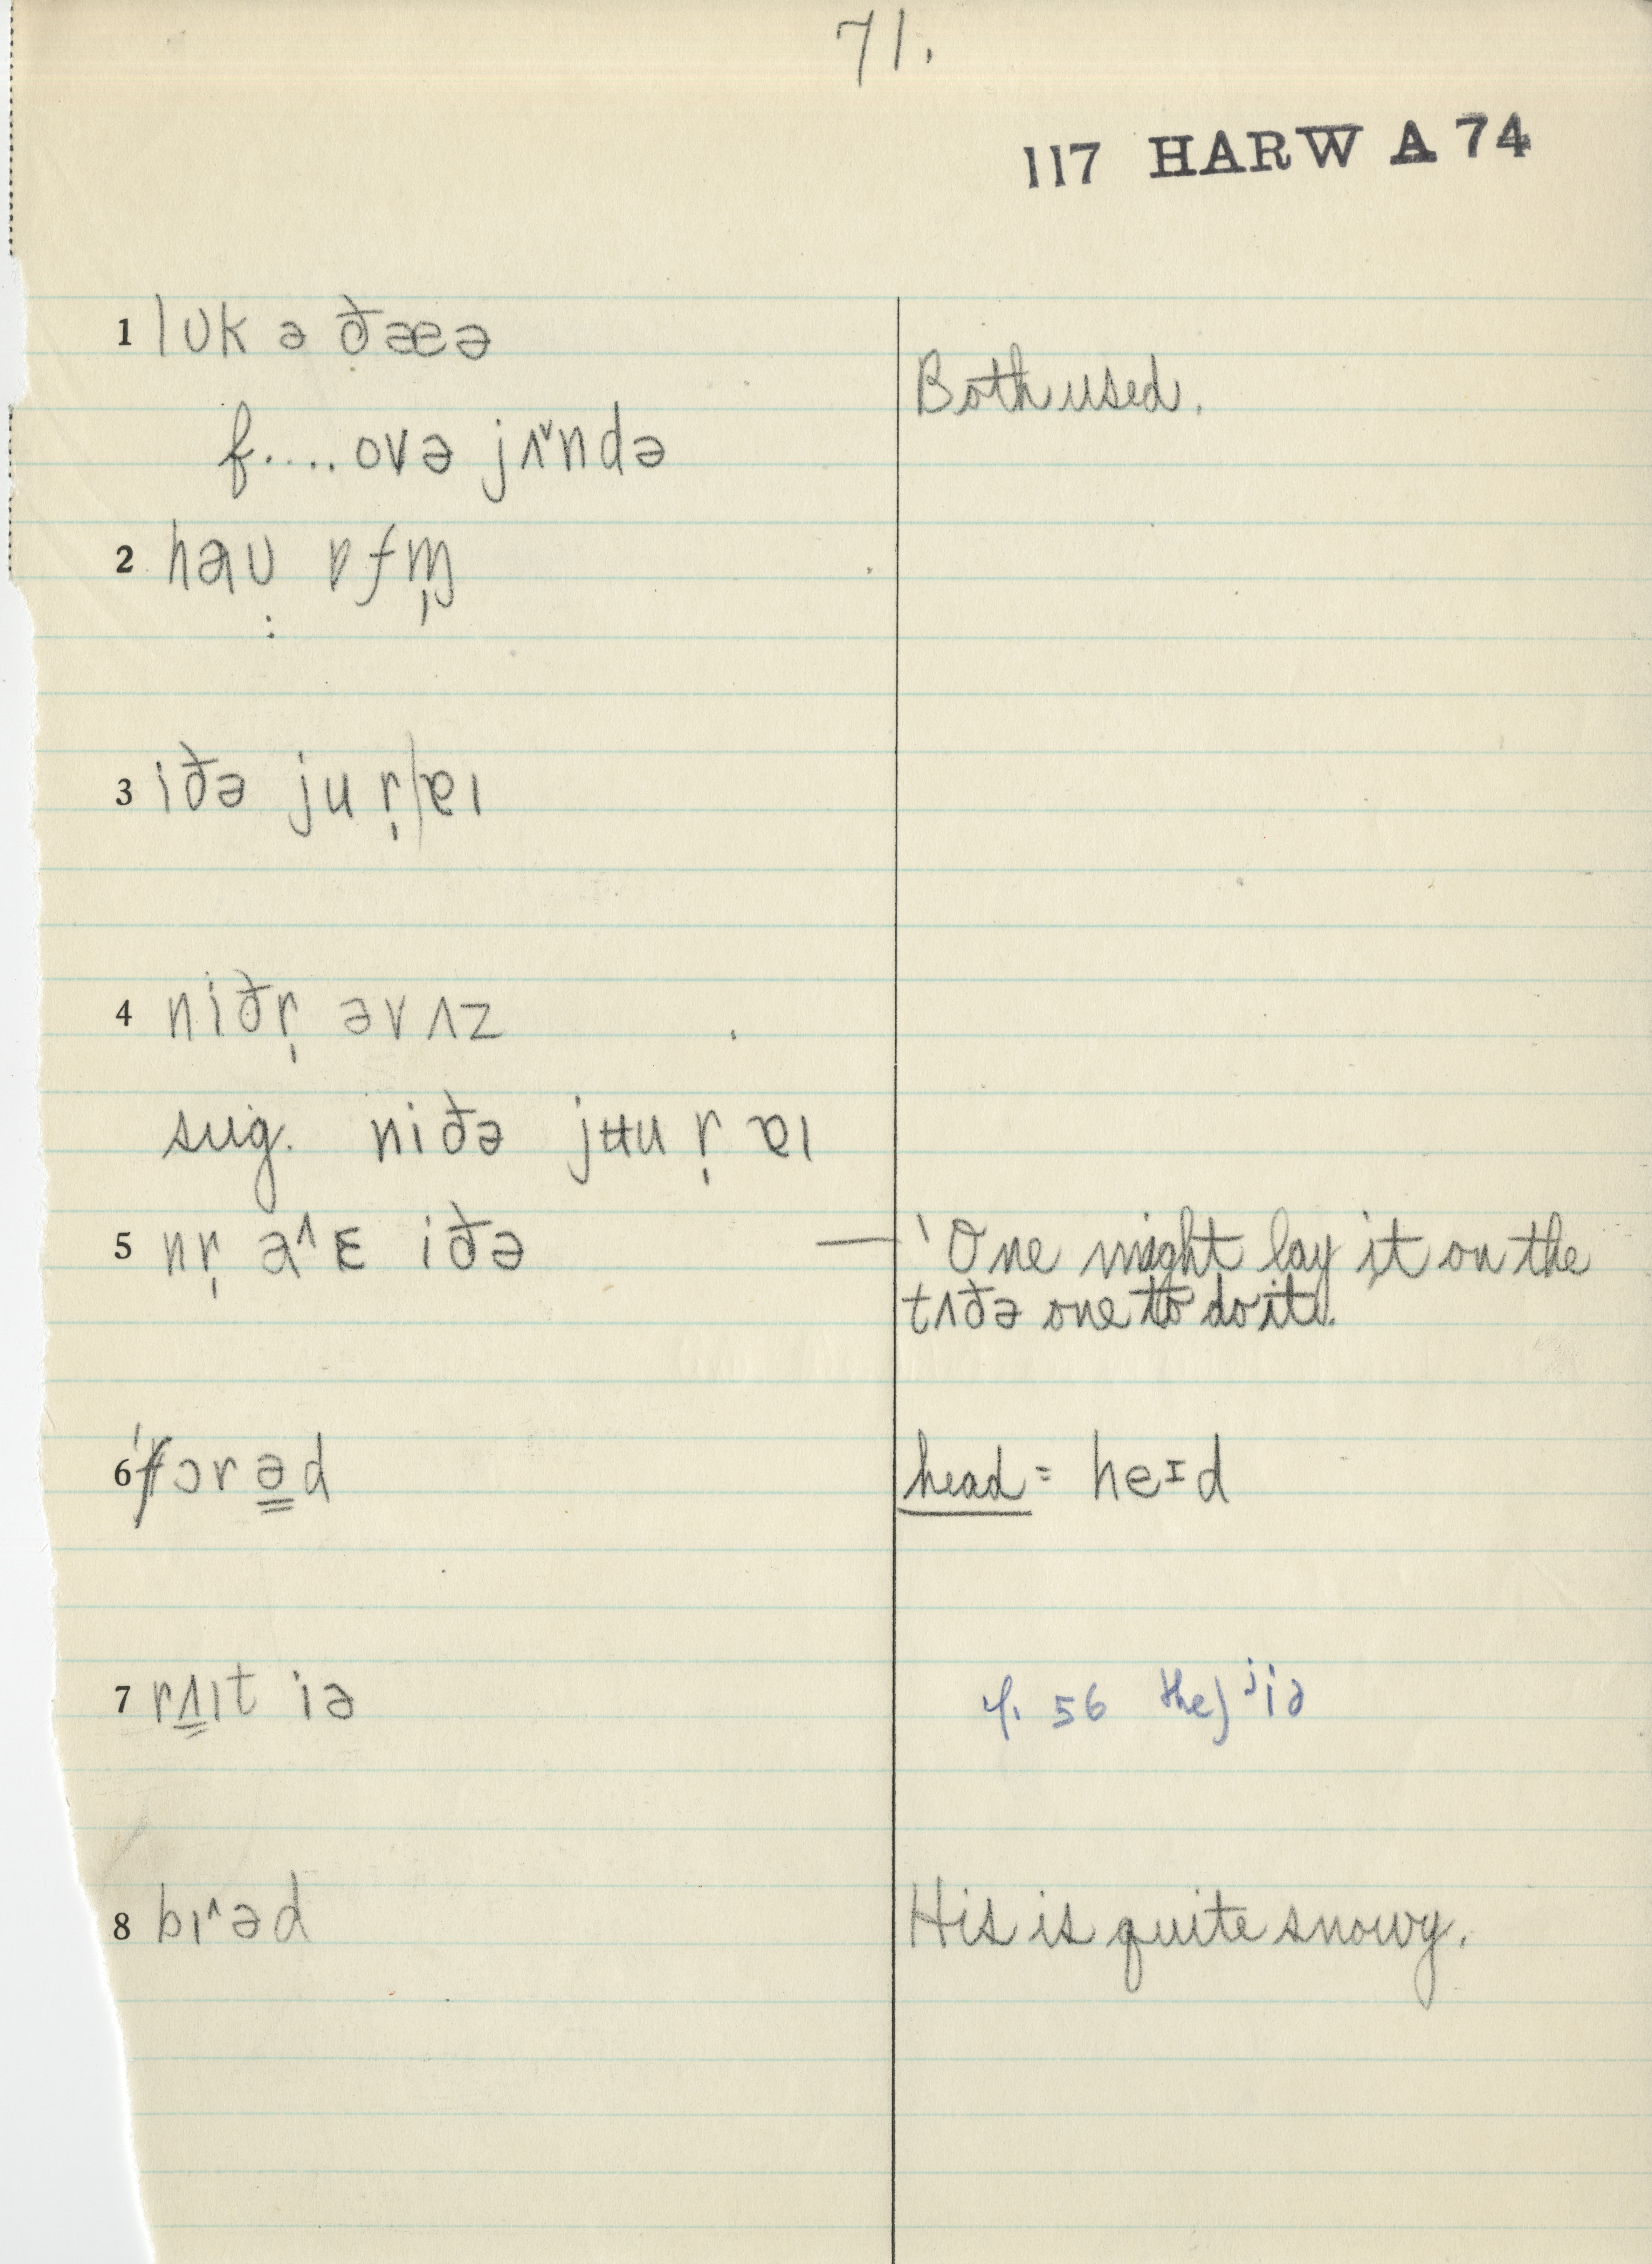 71.
117 HARW A 74
1 lʊk ə ðæə
Both used.
f.... ovə jʌ˅ndə
2 haʊ ɒfɱ̩
3 iðə ju r̩/ɐı
4 niðr̩ əvʌz
sug. niðə jʉu r̩ ɐı
5 nr̩ a^ɛ iðə — 'One might lay it on the
tʌðə one to do it.'
6 'fɔrəd head = heɪd
7 rʌıt iə cf. 56 the) ʲiə
8 bı^əd His is quite snowy.